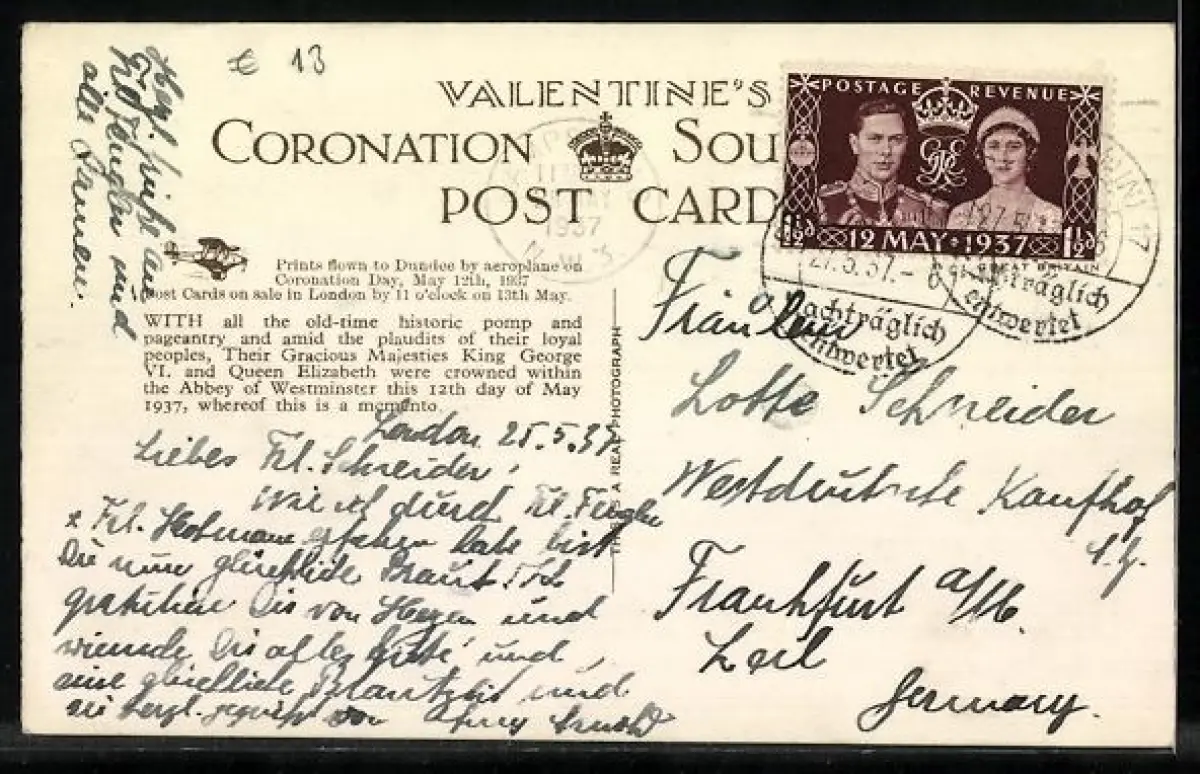 € 13
VALENTINE'S
CORONATION SOU
POST CARD
POSTAGE REVENUE
1½d 12 MAY • 1937 1½d
GREAT BRITAIN
1937
N.W.3
21.5.37.-
nachträglich
entwertet
nachträglich
entwertet
17
Prints flown to Dundee by aeroplane on
Coronation Day, May 12th, 1937
Post Cards on sale in London by 11 o'clock on 13th May.
WITH all the old-time historic pomp and
pageantry and amid the plaudits of their loyal
peoples, Their Gracious Majesties King George
VI. and Queen Elizabeth were crowned within
the Abbey of Westminster this 12th day of May
1937, whereof this is a memento.
THIS IS A REAL PHOTOGRAPH
London 25.5.37
Liebes Frl. Schneider!
Wie ich durch Frl.
+ Frl. Hofmann erfahren habe bist
Du nun glückliche Braut. Ich
gratuliere Dir von Herzen und
wünsche Dir alles Gute und
eine glückliche Brautzeit und
sei herzl. gegrüßt von Arnold
Herzl. Grüße an
und
alle Damen.
Fräulein
Lotte Schneider
Westdeutsche Kaufhof
Frankfurt a/M.
Zeil
Germany.